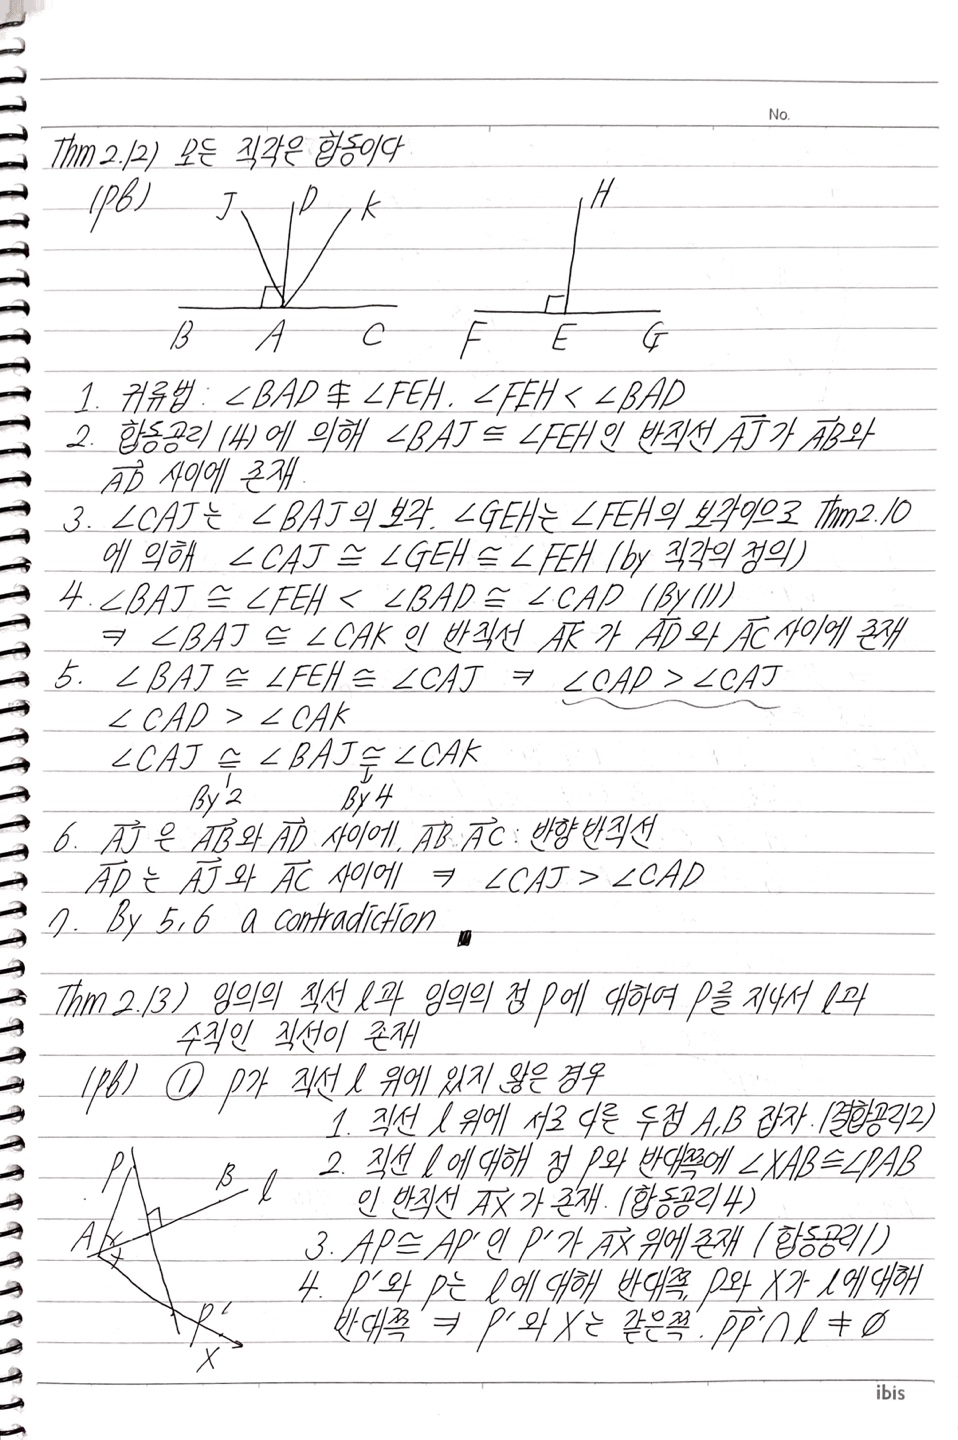 No.
Thm 2.12) 모든 직각은 합동이다
(pf)
J D K H
B A C F E G
1. 귀류법 : ∠BAD ≇ ∠FEH. ∠FEH < ∠BAD
2. 합동공리 (4)에 의해 ∠BAJ ≅ ∠FEH인 반직선 AJ→가 AB→와
AD→ 사이에 존재.
3. ∠CAJ는 ∠BAJ의 보각. ∠GEH는 ∠FEH의 보각이므로 Thm 2.10
에 의해 ∠CAJ ≅ ∠GEH ≅ ∠FEH (by 직각의 정의)
4. ∠BAJ ≅ ∠FEH < ∠BAD ≅ ∠CAD (By (1))
⇒ ∠BAJ ≅ ∠CAK 인 반직선 AK→가 AD→와 AC→ 사이에 존재
5. ∠BAJ ≅ ∠FEH ≅ ∠CAJ ⇒ ∠CAD > ∠CAJ
∠CAD > ∠CAK
∠CAJ ≅ ∠BAJ ≅ ∠CAK
By 2 By 4
6. AJ→은 AB→와 AD→ 사이에, AB→ AC→ : 반향반직선
AD→는 AJ→와 AC→ 사이에 ⇒ ∠CAJ > ∠CAD
7. By 5, 6 a contradiction
Thm 2.13) 임의의 직선 l과 임의의 점 P에 대하여 P를 지나서 l과
수직인 직선이 존재
(pf) ① P가 직선 l 위에 있지 않은 경우
1. 직선 l 위에 서로 다른 두점 A,B 잡자. (결합공리2)
2. 직선 l에 대해 점 P와 반대쪽에 ∠XAB≅∠PAB
인 반직선 AX→가 존재. (합동공리4)
3. AP≅AP'인 P'가 AX→ 위에 존재 (합동공리1)
4. P'와 P는 l에 대해 반대쪽, P와 X가 l에 대해
반대쪽 ⇒ P'와 X는 같은쪽. PP'→ ∩ l ≠ ∅
P B l
A
P'
X
ibis